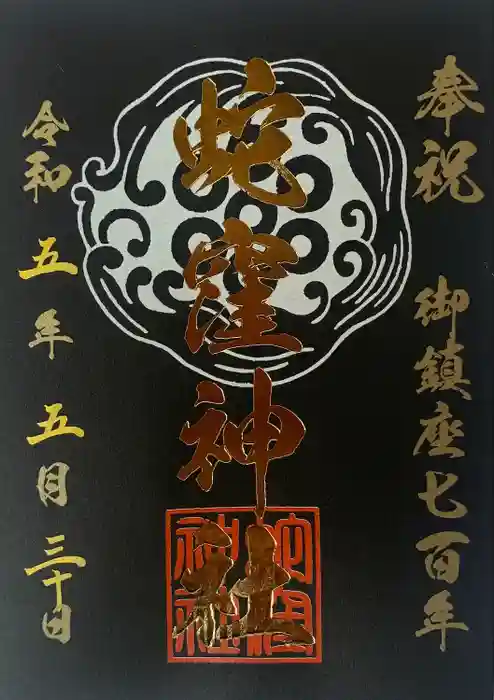 奉祝 御鎮座七百年
蛇窪神社
令和五年五月三十日